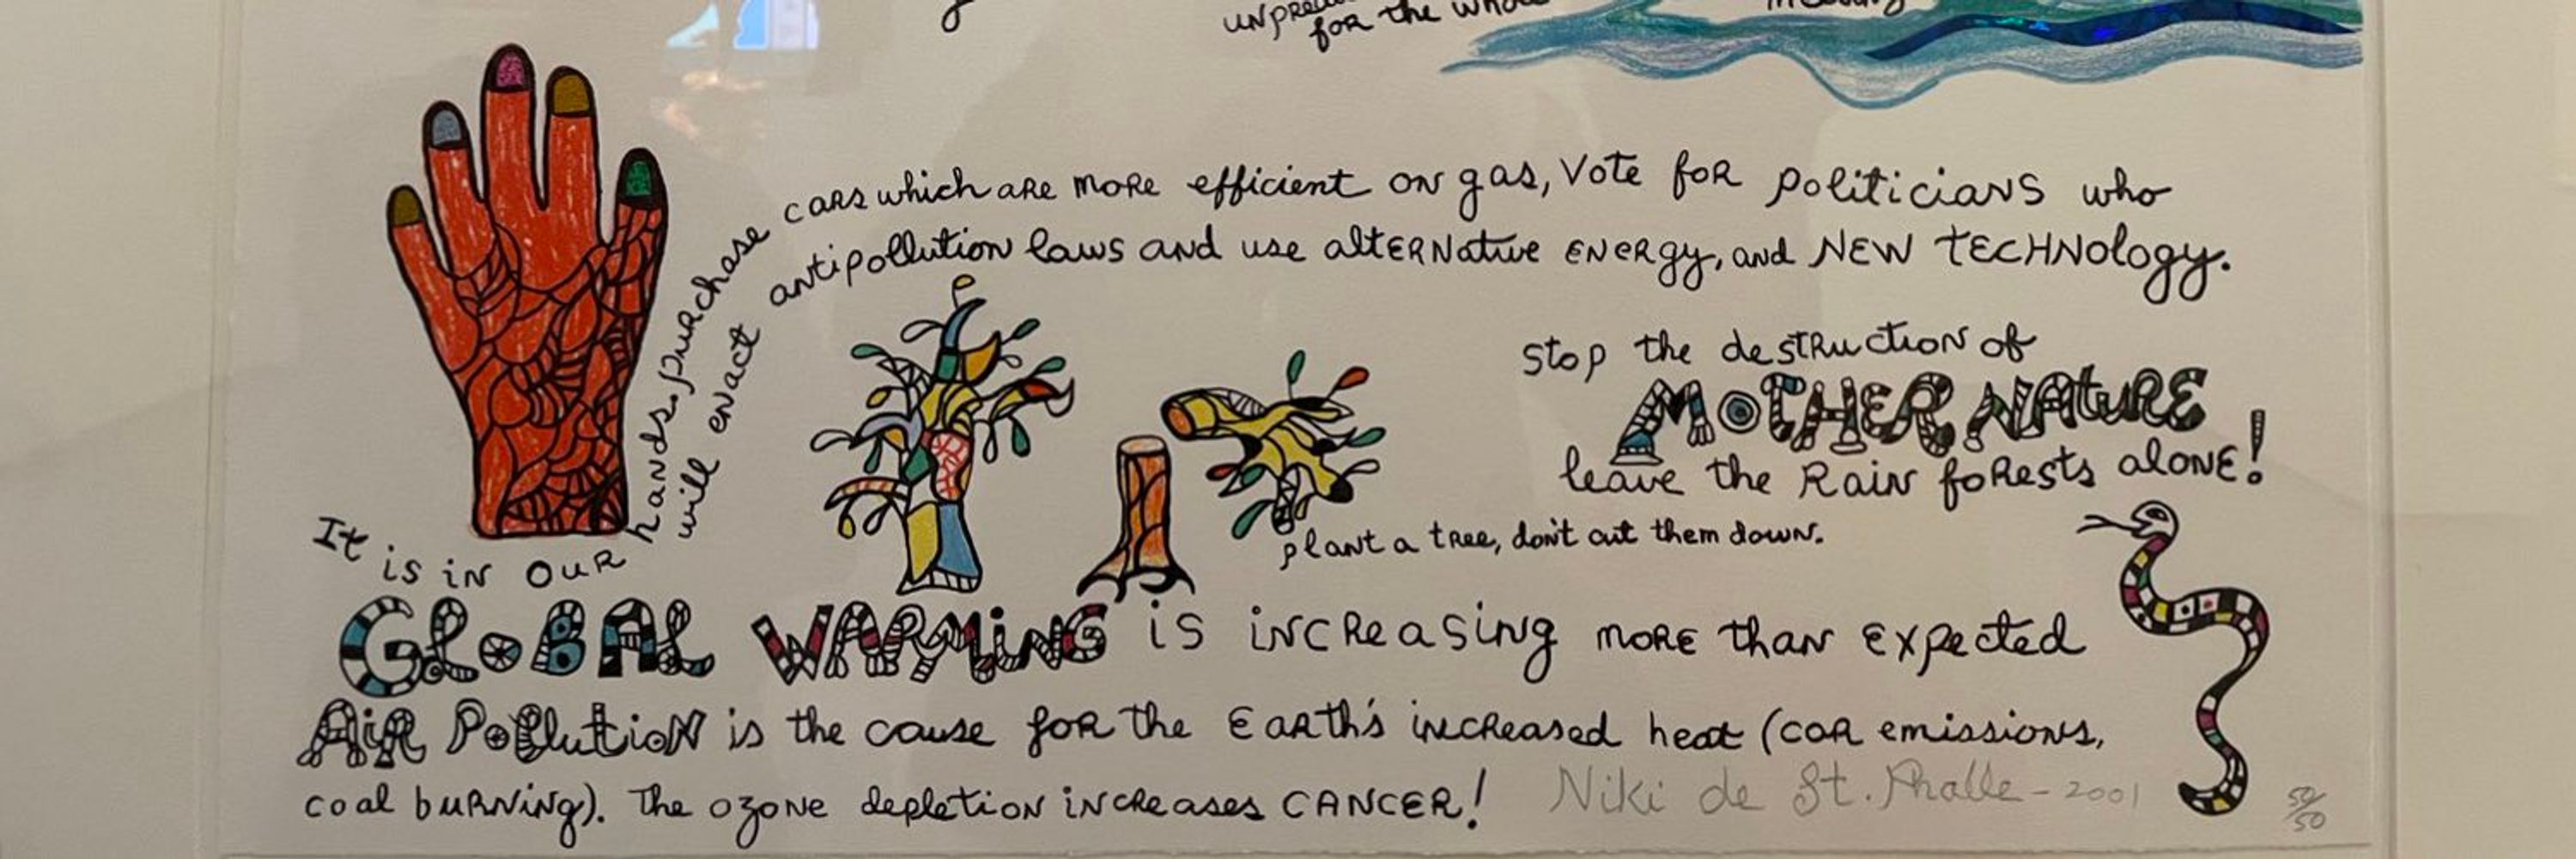 for the
It is in our hands, purchase cars which are more efficient on gas, Vote for politicians who
will enact antipollution laws and use alternative energy, and NEW TECHNology.
Stop the destruction of
MOTHER NATURE
leave the Rain forests alone!
plant a tree, don't cut them down.
GLOBAL WARMING is increasing more than expected
Air Pollution is the cause for the Earth's increased heat (car emissions,
coal burning). The ozone depletion increases CANCER!
Niki de St. Phalle - 2001
50/50